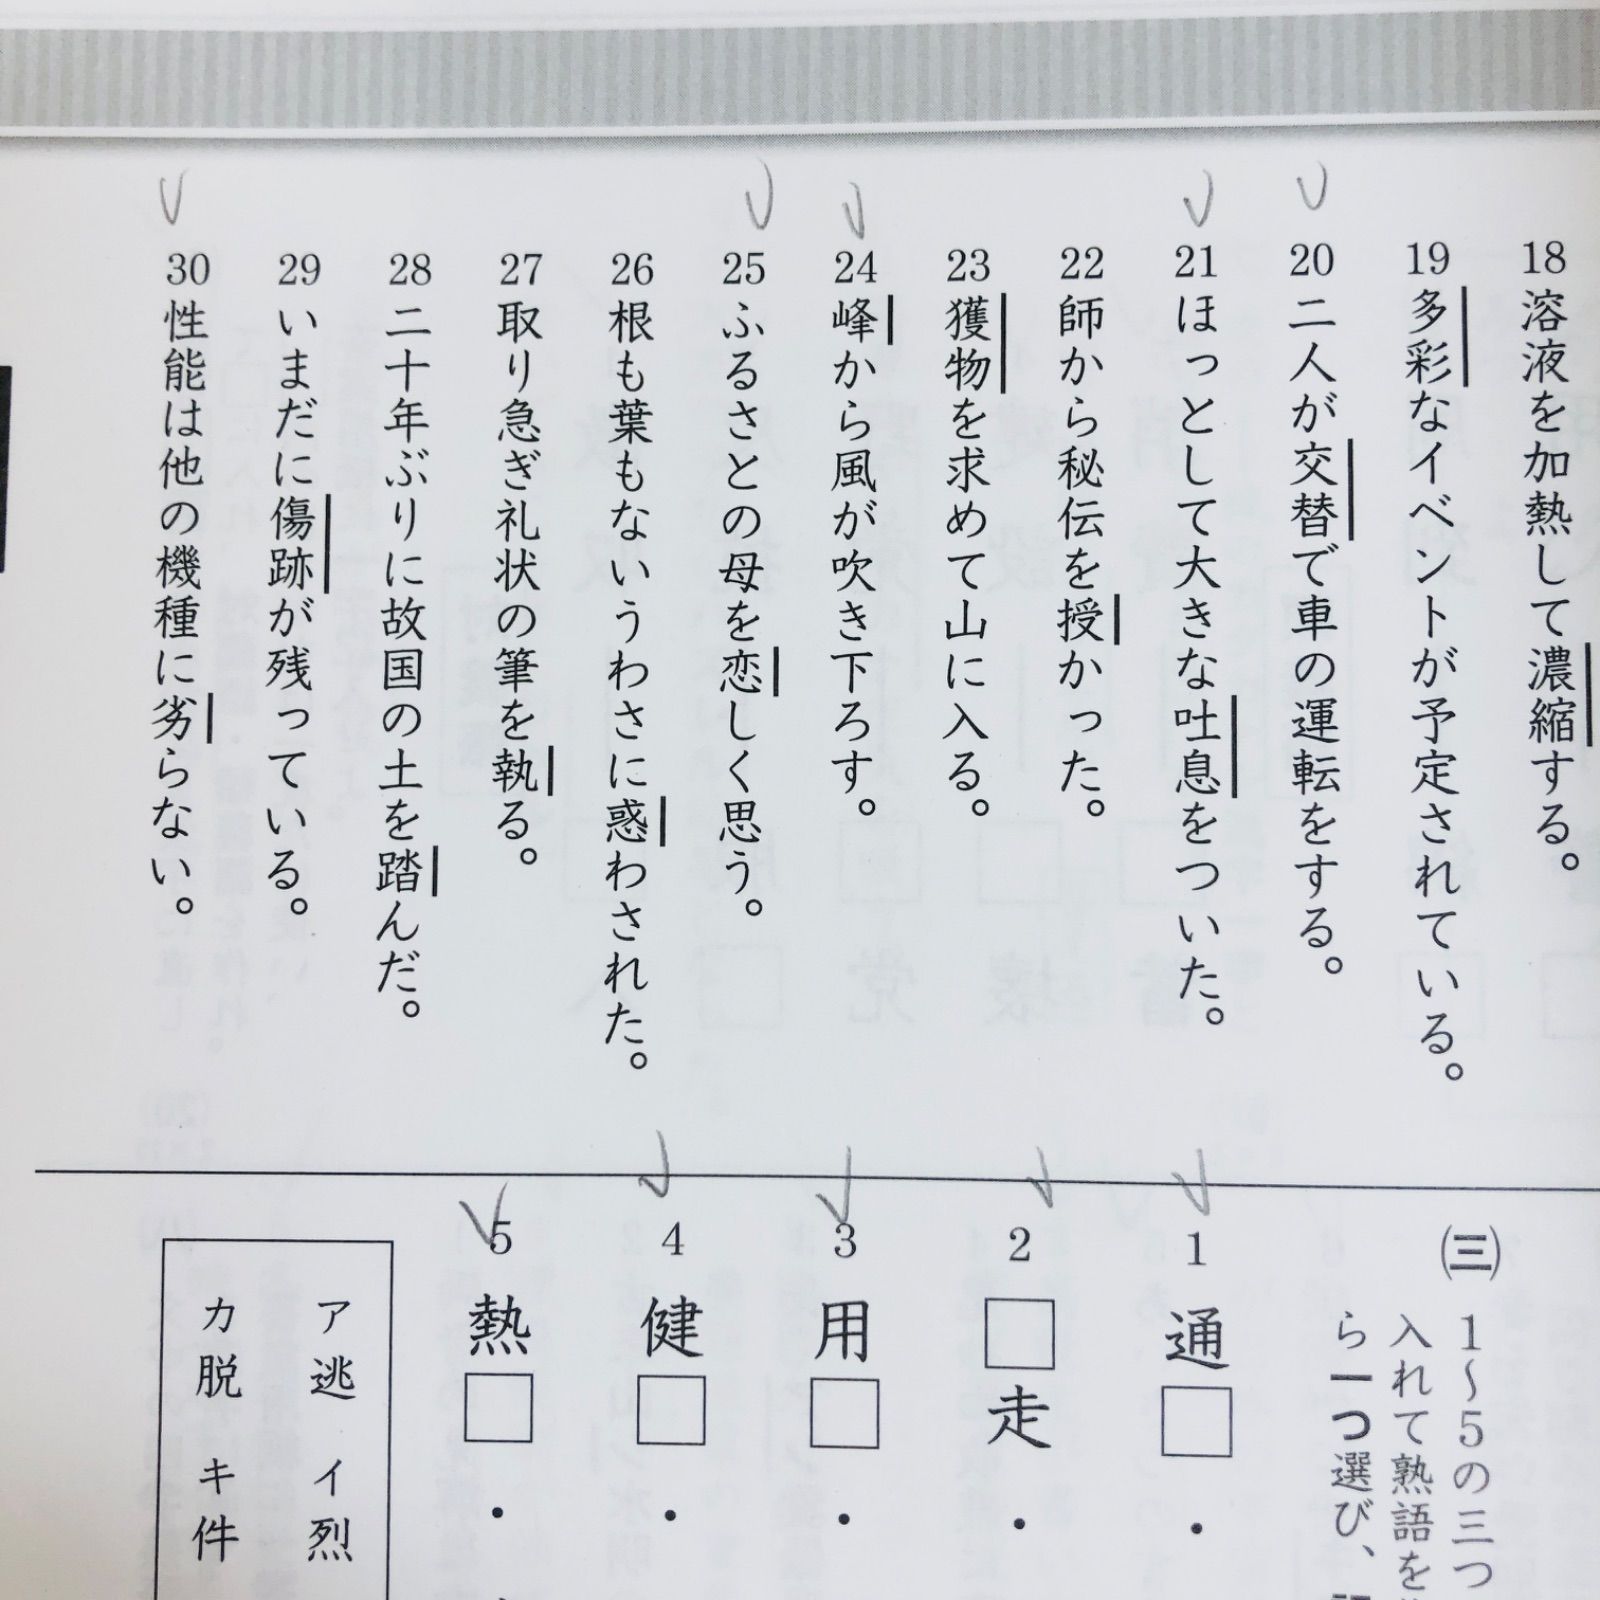 18 溶液を加熱して濃縮する。
19 多彩なイベントが予定されている。
20 二人が交替で車の運転をする。
21 ほっとして大きな吐息をついた。
22 師から秘伝を授かった。
23 獲物を求めて山に入る。
24 峰から風が吹き下ろす。
25 ふるさとの母を恋しく思う。
26 根も葉もないうわさに惑わされた。
27 取り急ぎ礼状の筆を執る。
28 二十年ぶりに故国の土を踏んだ。
29 いまだに傷跡が残っている。
30 性能は他の機種に劣らない。
(三) 1〜5の三つ
入れて熟語を
ら一つ選び、
1 通□・
2 □走・
3 用□・
4 健□・
5 熱□・
ア 逃 イ 烈
カ 脱 キ 件